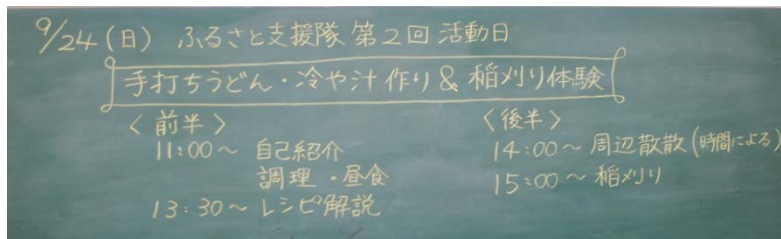 9/24(日) ふるさと支援隊 第2回 活動日
手打ちうどん・冷や汁作り & 稲刈り体験
〈前半〉
11:00～ 自己紹介
調理・昼食
13:30～ レシピ解説
〈後半〉
14:00～ 周辺散散(時間による)
15:00～ 稲刈り